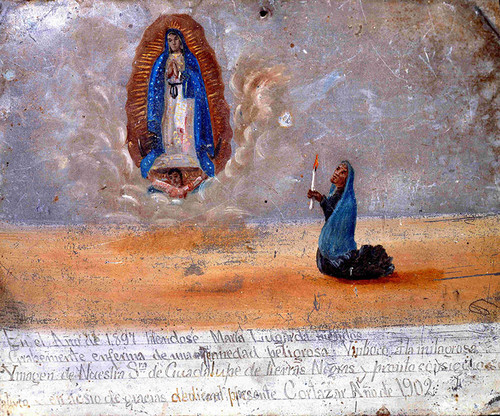 En el Año de 1,897 biendose Maria Liugarda
Grabemente enferma de una enfermedad peligrosa, Ynboco á la milagrosa
Ymagen de Nuestra Sra de Guadalube de tierras Negras y pronto
de gracias dedica el presente Cortazar Año de 1902.